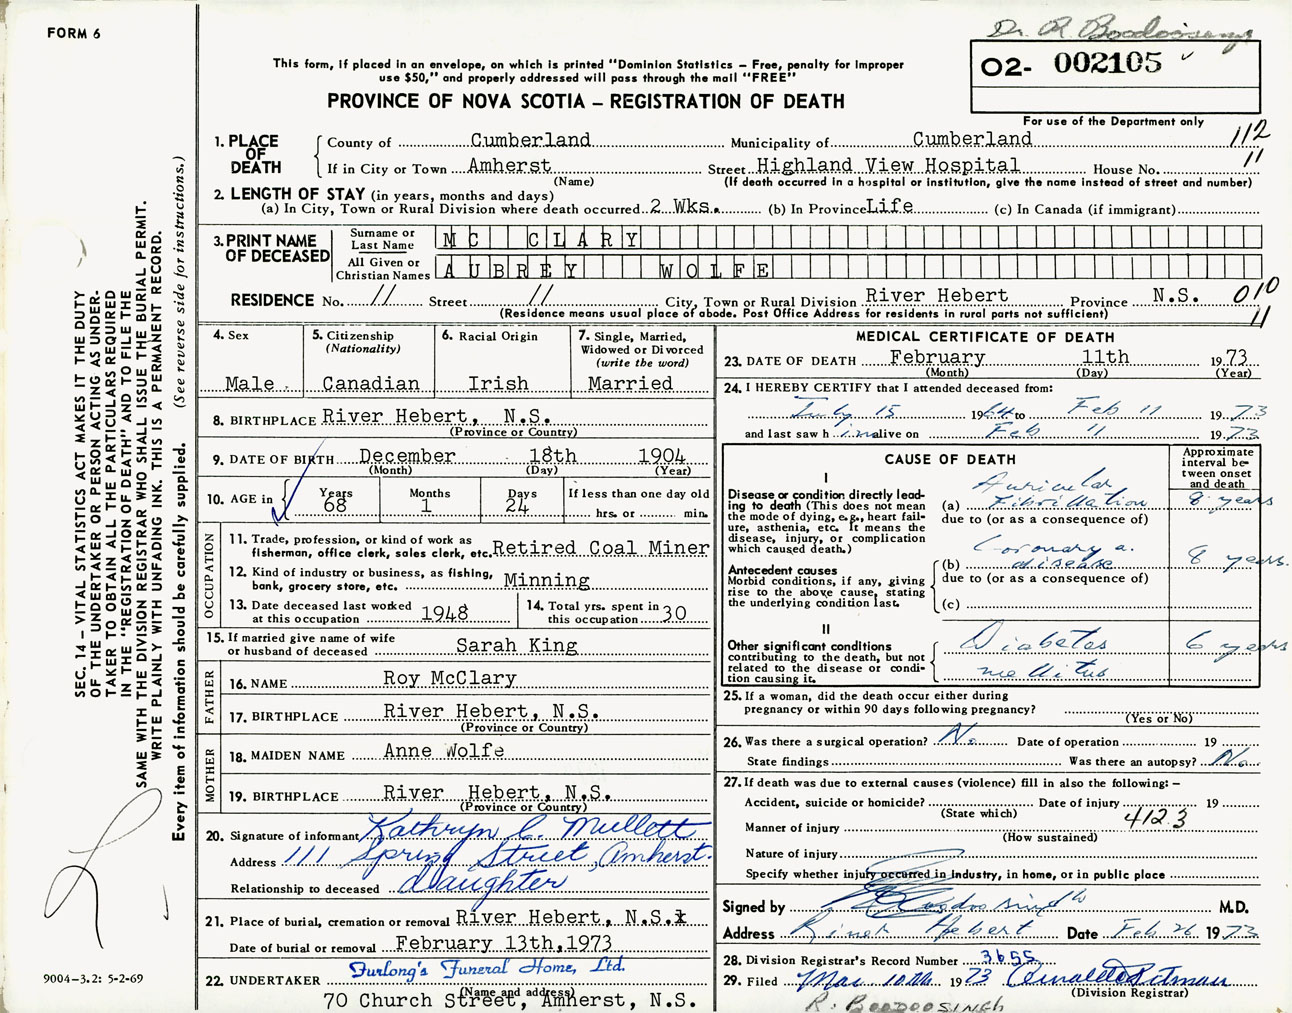 FORM 6
Dr. R. Boodoosingh
02- 002105
For use of the Department only
This form, if placed in an envelope, on which is printed "Dominion Statistics – Free, penalty for improper
use $50," and properly addressed will pass through the mail "FREE"
PROVINCE OF NOVA SCOTIA – REGISTRATION OF DEATH
1. PLACE OF DEATH
County of Cumberland Municipality of Cumberland 112
If in City or Town Amherst Street Highland View Hospital House No. 11
(Name) (If death occurred in a hospital or institution, give the name instead of street and number)
2. LENGTH OF STAY (in years, months and days)
(a) In City, Town or Rural Division where death occurred 2 Wks. (b) In Province Life (c) In Canada (if immigrant)
3. PRINT NAME OF DECEASED
Surname or Last Name MC CLARY
All Given or Christian Names AUBREY WOLFE
RESIDENCE No. // Street // City, Town or Rural Division River Hebert Province N.S. 010
(Residence means usual place of abode. Post Office Address for residents in rural parts not sufficient) 11
4. Sex Male
5. Citizenship (Nationality) Canadian
6. Racial Origin Irish
7. Single, Married, Widowed or Divorced (write the word) Married
8. BIRTHPLACE River Hebert, N.S.
(Province or Country)
9. DATE OF BIRTH December 18th 1904
(Month) (Day) (Year)
10. AGE in Years 68 Months 1 Days 24 If less than one day old hrs. or min.
OCCUPATION
11. Trade, profession, or kind of work as
fisherman, office clerk, sales clerk, etc. Retired Coal Miner
12. Kind of industry or business, as fishing,
bank, grocery store, etc. Minning
13. Date deceased last worked at this occupation 1948 14. Total yrs. spent in this occupation 30
15. If married give name of wife
or husband of deceased Sarah King
FATHER
16. NAME Roy McClary
17. BIRTHPLACE River Hebert, N.S.
(Province or Country)
MOTHER
18. MAIDEN NAME Anne Wolfe
19. BIRTHPLACE River Hebert, N.S.
(Province or Country)
20. Signature of informant Kathryn C. Mullett
Address 111 Spring Street, Amherst.
Relationship to deceased daughter
21. Place of burial, cremation or removal River Hebert, N.S.
Date of burial or removal February 13th, 1973
22. UNDERTAKER Furlong's Funeral Home, Ltd.
(Name and address)
70 Church Street, Amherst, N.S.
MEDICAL CERTIFICATE OF DEATH
23. DATE OF DEATH February 11th 1973
(Month) (Day) (Year)
24. I HEREBY CERTIFY that I attended deceased from:
July 15 1964 to Feb 11 1973
and last saw him alive on Feb 11 1973
CAUSE OF DEATH
Approximate interval between onset and death
I
Disease or condition directly leading
to death (This does not mean
the mode of dying, e.g., heart failure,
asthenia, etc. It means the
disease, injury, or complication
which caused death.)
(a) Auricular Fibrillation 8 years
due to (or as a consequence of)
Antecedent causes
Morbid conditions, if any, giving
rise to the above cause, stating
the underlying condition last.
(b) Coronary a. disease 8 years.
due to (or as a consequence of)
(c)
II
Other significant conditions
contributing to the death, but not
related to the disease or condition
causing it.
Diabetes mellitus 6 years
25. If a woman, did the death occur either during
pregnancy or within 90 days following pregnancy?
(Yes or No)
26. Was there a surgical operation? No Date of operation 19
State findings Was there an autopsy? No
27. If death was due to external causes (violence) fill in also the following: –
Accident, suicide or homicide? Date of injury 19
(State which) 4123
Manner of injury
(How sustained)
Nature of injury
Specify whether injury occurred in industry, in home, or in public place
Signed by R Boodoosingh M.D.
Address River Hebert Date Feb 26 1973
28. Division Registrar's Record Number 3655
29. Filed Mar 10th 1973
(Division Registrar)
R. BOODOOSINGH
SEC. 14 – VITAL STATISTICS ACT MAKES IT THE DUTY
OF THE UNDERTAKER OR PERSON ACTING AS UNDERTAKER
TO OBTAIN ALL THE PARTICULARS REQUIRED
IN THE "REGISTRATION OF DEATH" AND TO FILE THE
SAME WITH THE DIVISION REGISTRAR WHO SHALL ISSUE THE BURIAL PERMIT.
WRITE PLAINLY WITH UNFADING INK. THIS IS A PERMANENT RECORD.
Every item of information should be carefully supplied. (See reverse side for instructions.)
9004-3.2: 5-2-69